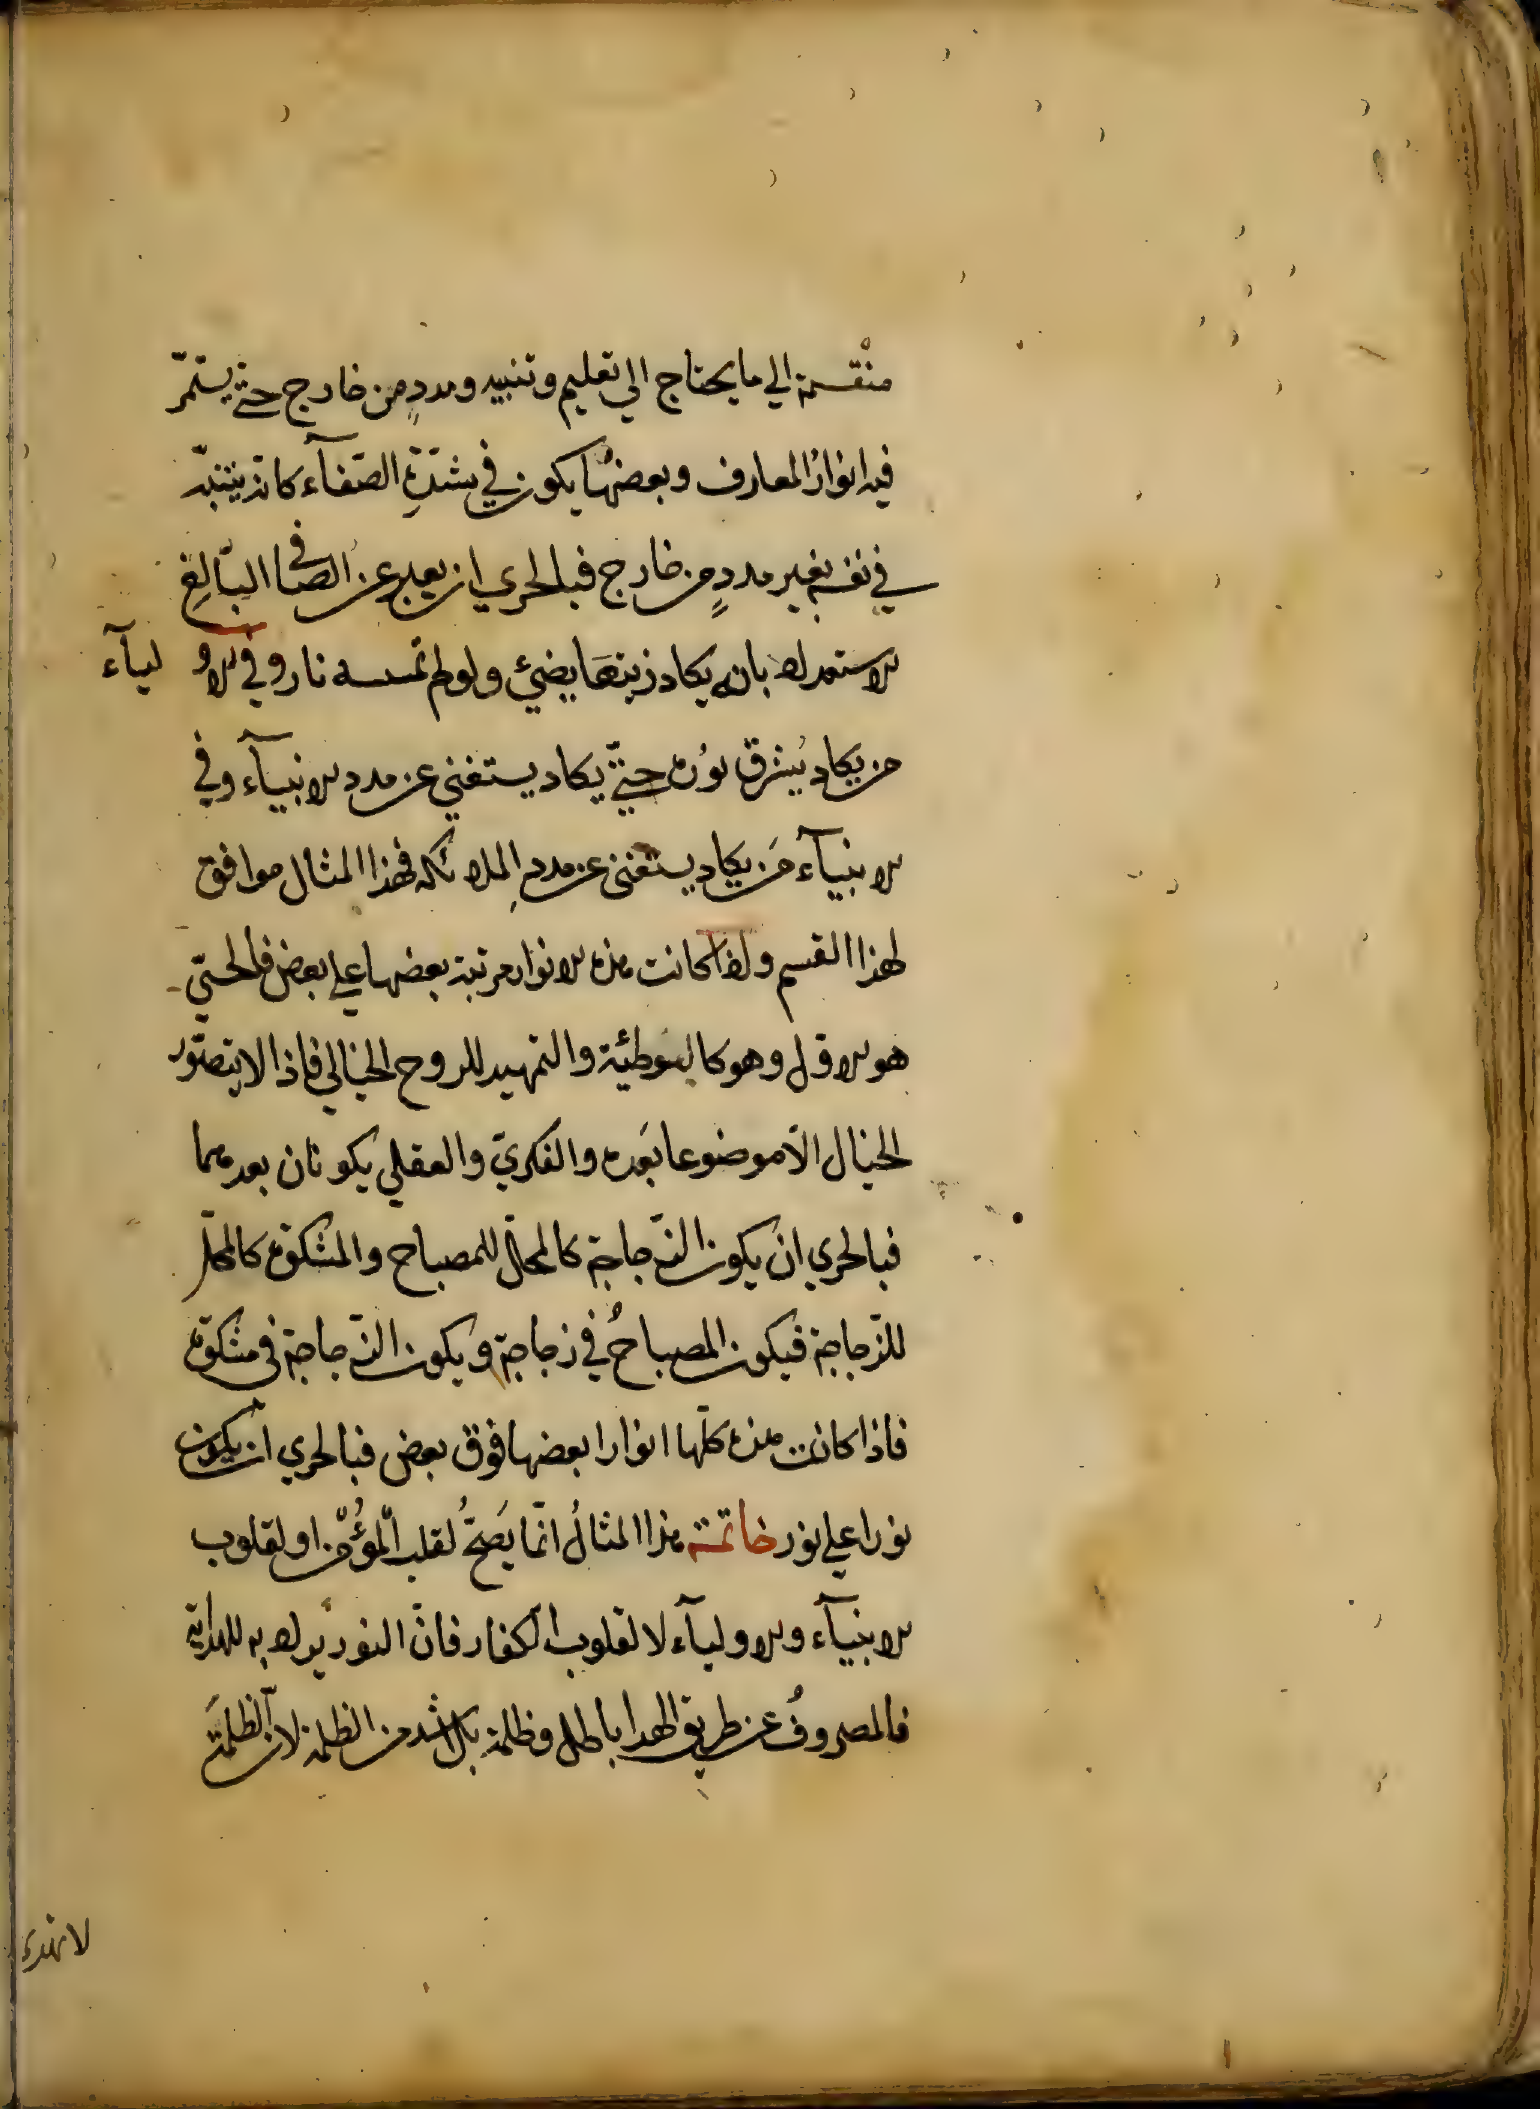 منقسمة الي ما يحتاج الي تعليم وتنبيه ومددٍ من خارج حتّي يستمرّ
فيه انوارُ المعارف وبعضها يكون في شدّةِ الصّفآء كانّه يتنبّه
في نفسه بغير مددٍ من خارج فبالحري ان يعبر عن الصافي البّالغ
الاستعداد بانه يكاد زيتها يضئ ولو لم تمسسه نار وفي الاوليآء
من يكاد يُشرق نوُره حتّي يكاد يستغني عن مدد الانبيآء وفي
الانبيآء مَن يكاد يستغني عن مدد الملائكه فهذا المثال موافق
لهذا القسم ولذا كانت هذه الانوار مرتبة بعضها علي بعض فالحسّي
هو الاوّل وهو كالتوطيئة والتمهيد للروح الخيالي فاذا لا يتصوّر
الخيال الّا موضوعا بَعده والفكريّ والعقلي يكونان بعدهما
فبالحري ان يكون الزّجاجة كالمحالّ للمصباح والمشكوة كالمحلّ
للزّجاجة فيكون المصباحُ في زجاجة ويكون الزّجاجة في مشكوة
فاذا كانت هذه كلّها انوارا بعضها فوق بعض فبالحري ان يكون
نورا علي نور خاتمة هذا المثالُ انّما يَصحّ لقلب المُؤمن او لقلوب
الانبيآء والاوليآء لا لقلوب الكفار فانّ النور يراد به للهداية
فالمصروفُ عن طريق الهدا باطل وظلمة بل اشد من الظلمة لان الظلمَة
لا تهدي